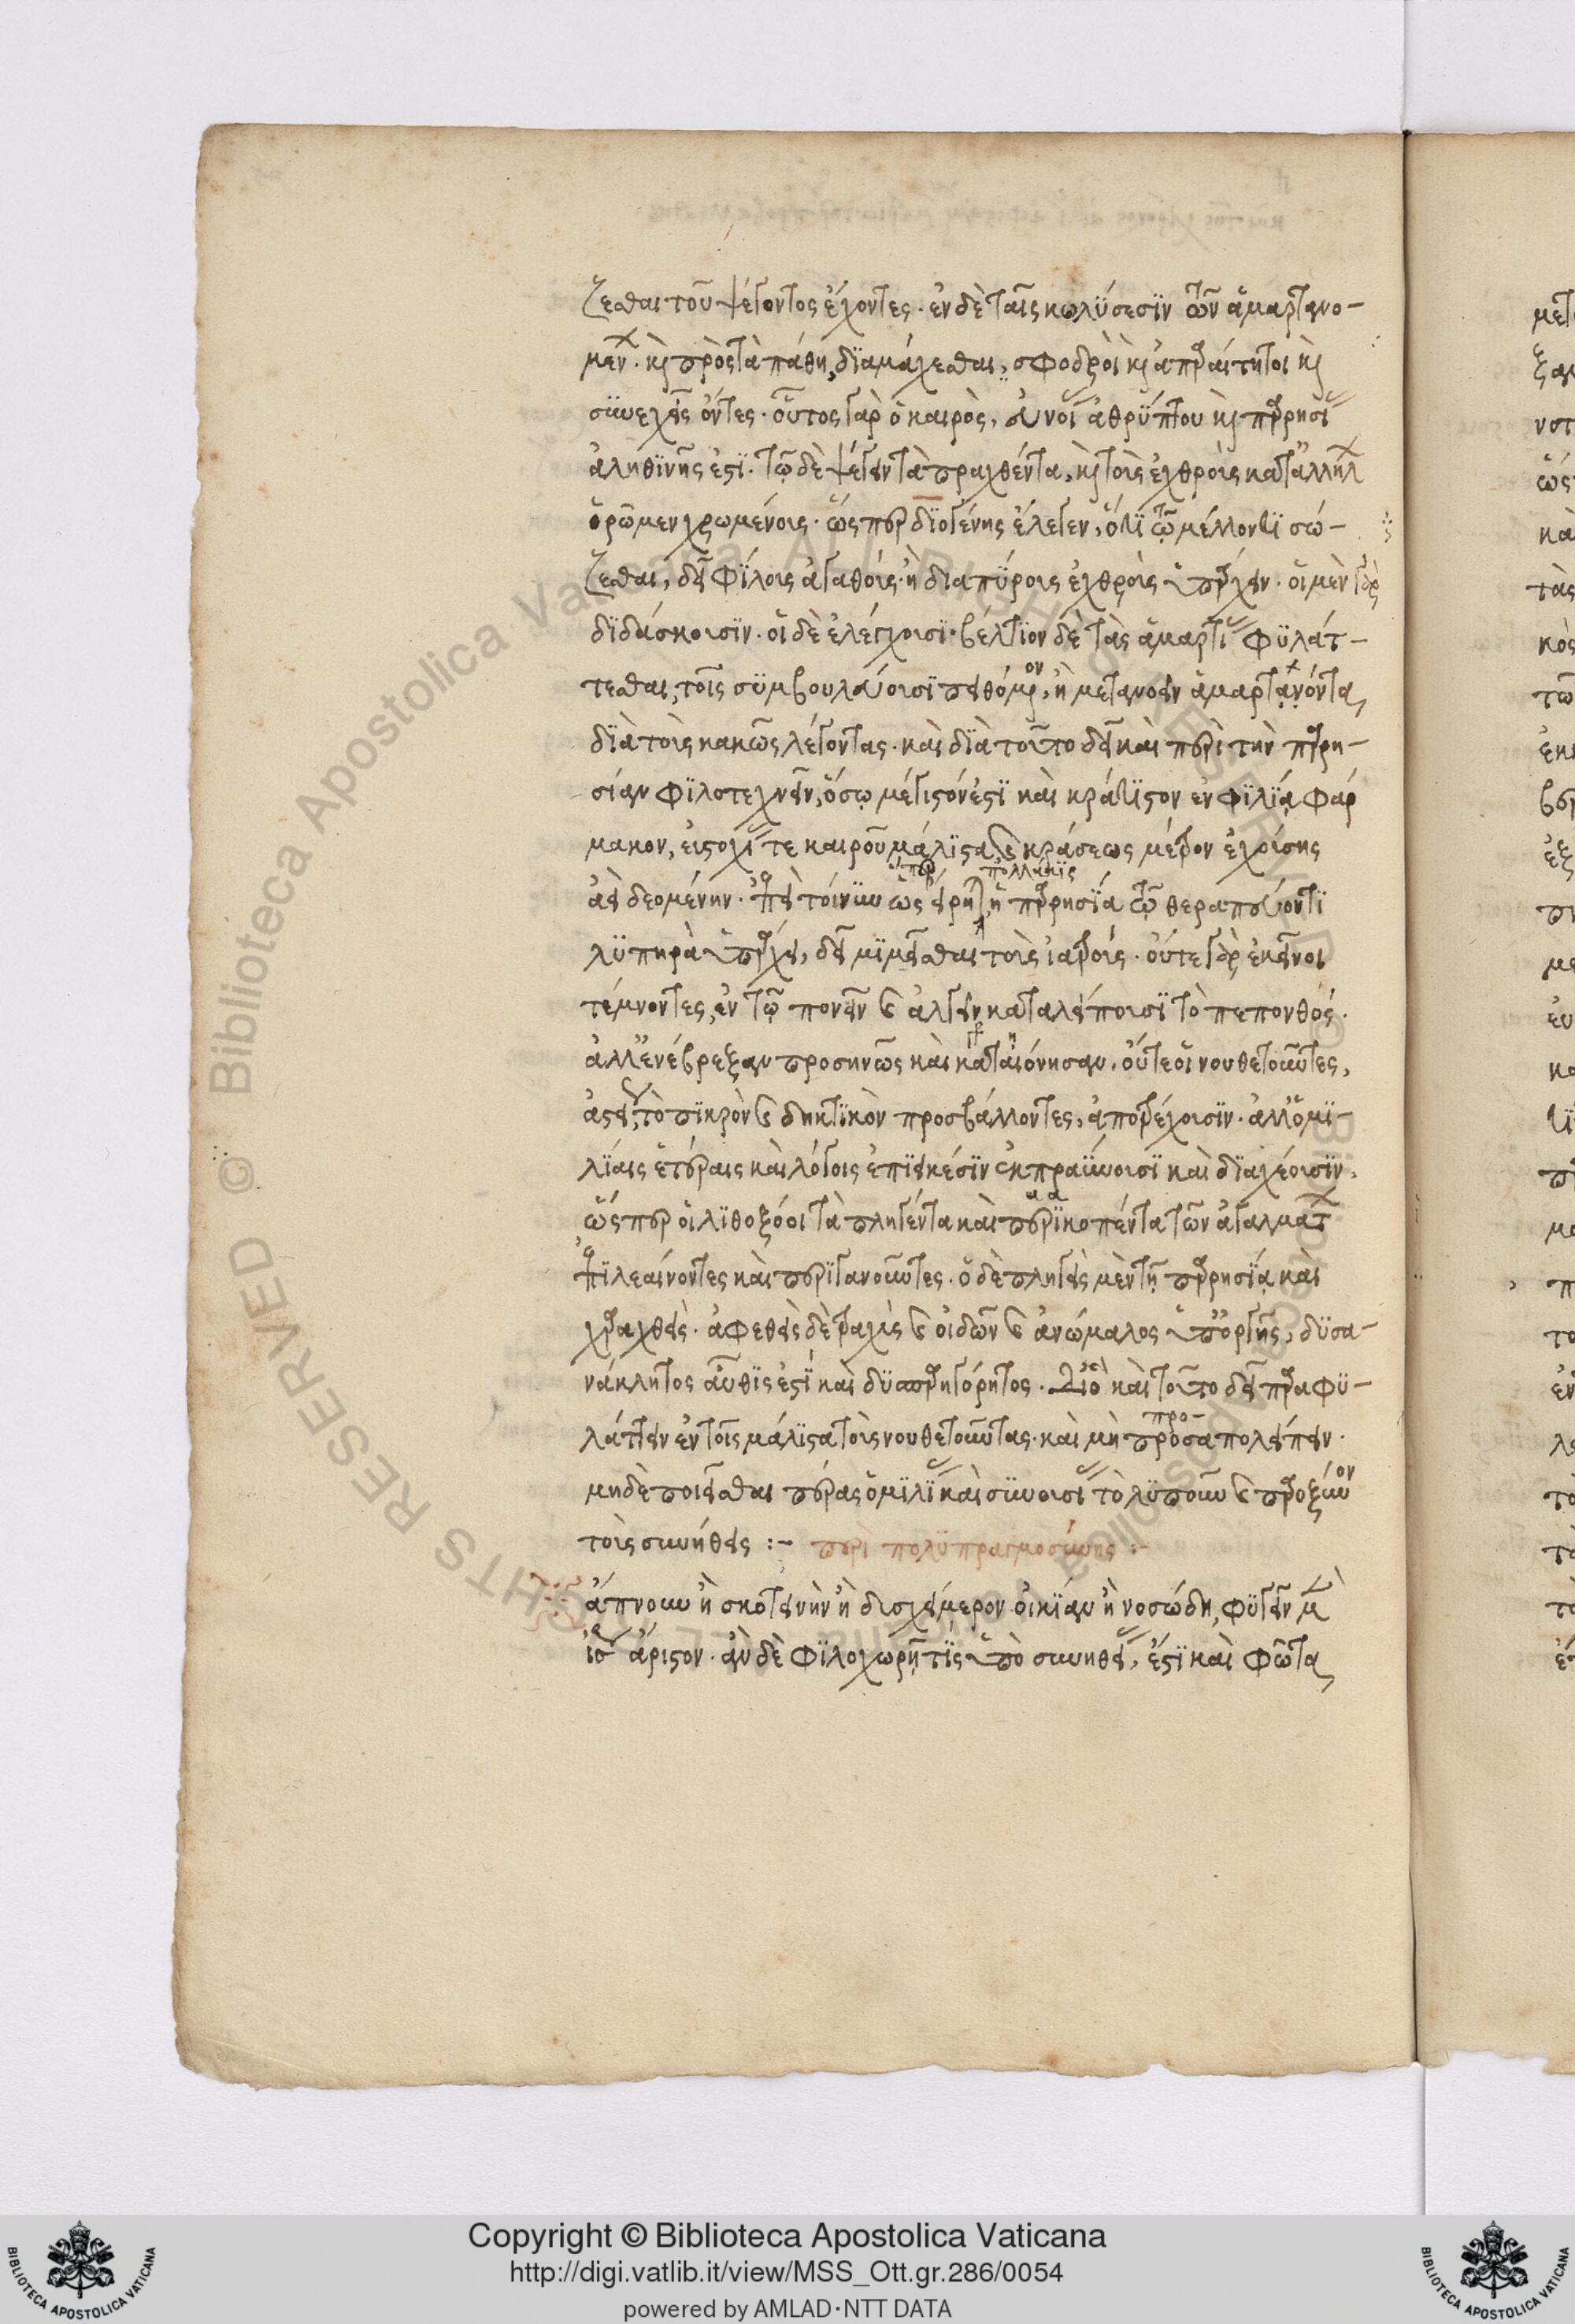 ζεσθαι τοῦ ψέγοντος ἔχοντες. ἐν δὲ ταῖς κωλύσεσιν τῶν ἁμαρτανο-
μένων. καὶ πρὸς τὰ πάθη διαμάχεσθαι, σφοδροὶ καὶ ἀπαραίτητοι καὶ
συνεχεῖς ὄντες. οὗτος γὰρ ὁ καιρὸς, εὐνοίας ἀθρύπτου καὶ παρρησίας
ἀληθινῆς ἐστι. τῷ δὲ ψέγειν τὰ πραχθέντα, καὶ τοὺς ἐχθροὺς κατ' ἀλλήλων
ὁρῶμεν χρωμένους. ὥσπερ διογένης ἔλεγεν, ὅτι τῷ μέλλοντι σώ-
ζεσθαι, δεῖ φίλους ἀγαθοὺς ἢ διαπύρους ἐχθροὺς ὑπάρχειν. οἱ μὲν γὰρ
διδάσκουσιν. οἱ δὲ ἐλέγχουσι. βέλτιον δὲ τὰς ἁμαρτίας φυλάτ-
τεσθαι, τοῖς συμβουλεύουσι πειθόμενον, ἢ μετανοεῖν ἁμαρτανόντα,
διὰ τοὺς κακῶς λέγοντας. καὶ διὰ τοῦτο δεῖ καὶ περὶ τὴν παρρη-
σίαν φιλοτεχνεῖν, ὅσῳ μέγιστόν ἐστι καὶ κράτιστον ἐν φιλίᾳ φάρ
μακον, εὐστοχίας τε καιροῦ μάλιστα, καὶ κράσεως μέτρον ἐχούσης
ἀεὶ δεομένην. ἐπεὶ τοίνυν ὥσπερ εἴρηται, πολλάκις ἡ παρρησία τῷ θεραπεύοντι
λυπηρὰ ὑπάρχει, δεῖ μιμεῖσθαι τοὺς ἰατρούς. οὔτε γὰρ ἐκεῖνοι
τέμνοντες, ἐν τῷ πονεῖν καὶ ἀλγεῖν καταλείπουσι τὸ πεπονθός.
ἀλλ' ἐνέβρεξαν προσηνῶς καὶ κατῃόνησαν. οὔτε οἱ νουθετοῦντες,
ἀστείως τὸ πικρὸν καὶ δηκτικὸν προσβάλλοντες, ἀποτρέχουσιν. ἀλλ' ὁμι-
λίαις ἑτέραις καὶ λόγοις ἐπιεικέσιν ἐκπραΰνουσι καὶ διαχέουσιν.
ὥσπερ οἱ λιθοξόοι τὰ πληγέντα καὶ περικοπέντα τῶν ἀγαλμάτων
ἐπιλεαίνοντες καὶ περιγανοῦντες. ὁ δὲ πληγεὶς μὲν τῇ παρρησίᾳ καὶ
χαραχθεὶς. ἀφεθεὶς δὲ τραχὺς καὶ οἰδῶν καὶ ἀνώμαλος ὑπ' ὀργῆς, δυσα-
νάκλητος αὖθίς ἐστι καὶ δυσπαρηγόρητος. Διὸ καὶ τοῦτο δεῖ παραφυ-
λάττειν ἐν τοῖς μάλιστα τοὺς νουθετοῦντας. καὶ μὴ προαπολείπειν.
μηδὲ ποιεῖσθαι πέρας ὁμιλίας καὶ συνουσίας τὸ λυποῦν καὶ παροξύνον
τοὺς συνήθεις :- περὶ πολυπραγμοσύνης :-
ἄπνουν ἢ σκοτεινὴν ἢ δυσχείμερον οἰκίαν ἢ νοσώδη, φυγεῖν μὲν
ἴσως ἄριστον. ἂν δὲ φιλοχωρῇ τις ὑπὸ συνηθείας, ἔστι καὶ φῶτα